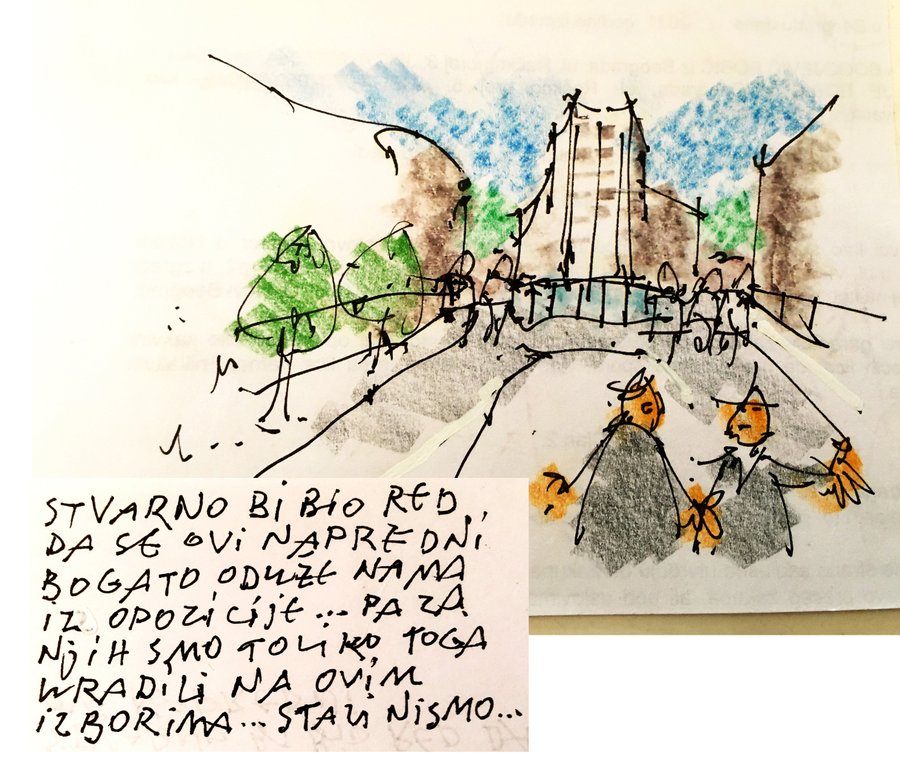 STVARNO BI BIO RED,
DA SE OVI NAPREDNI
BOGATO ODUŽE NAMA
IZ OPOZICIJE... PA ZA
NJIH SMO TOLIKO TOGA
URADILI NA OVIM
IZBORIMA... STALI NISMO...